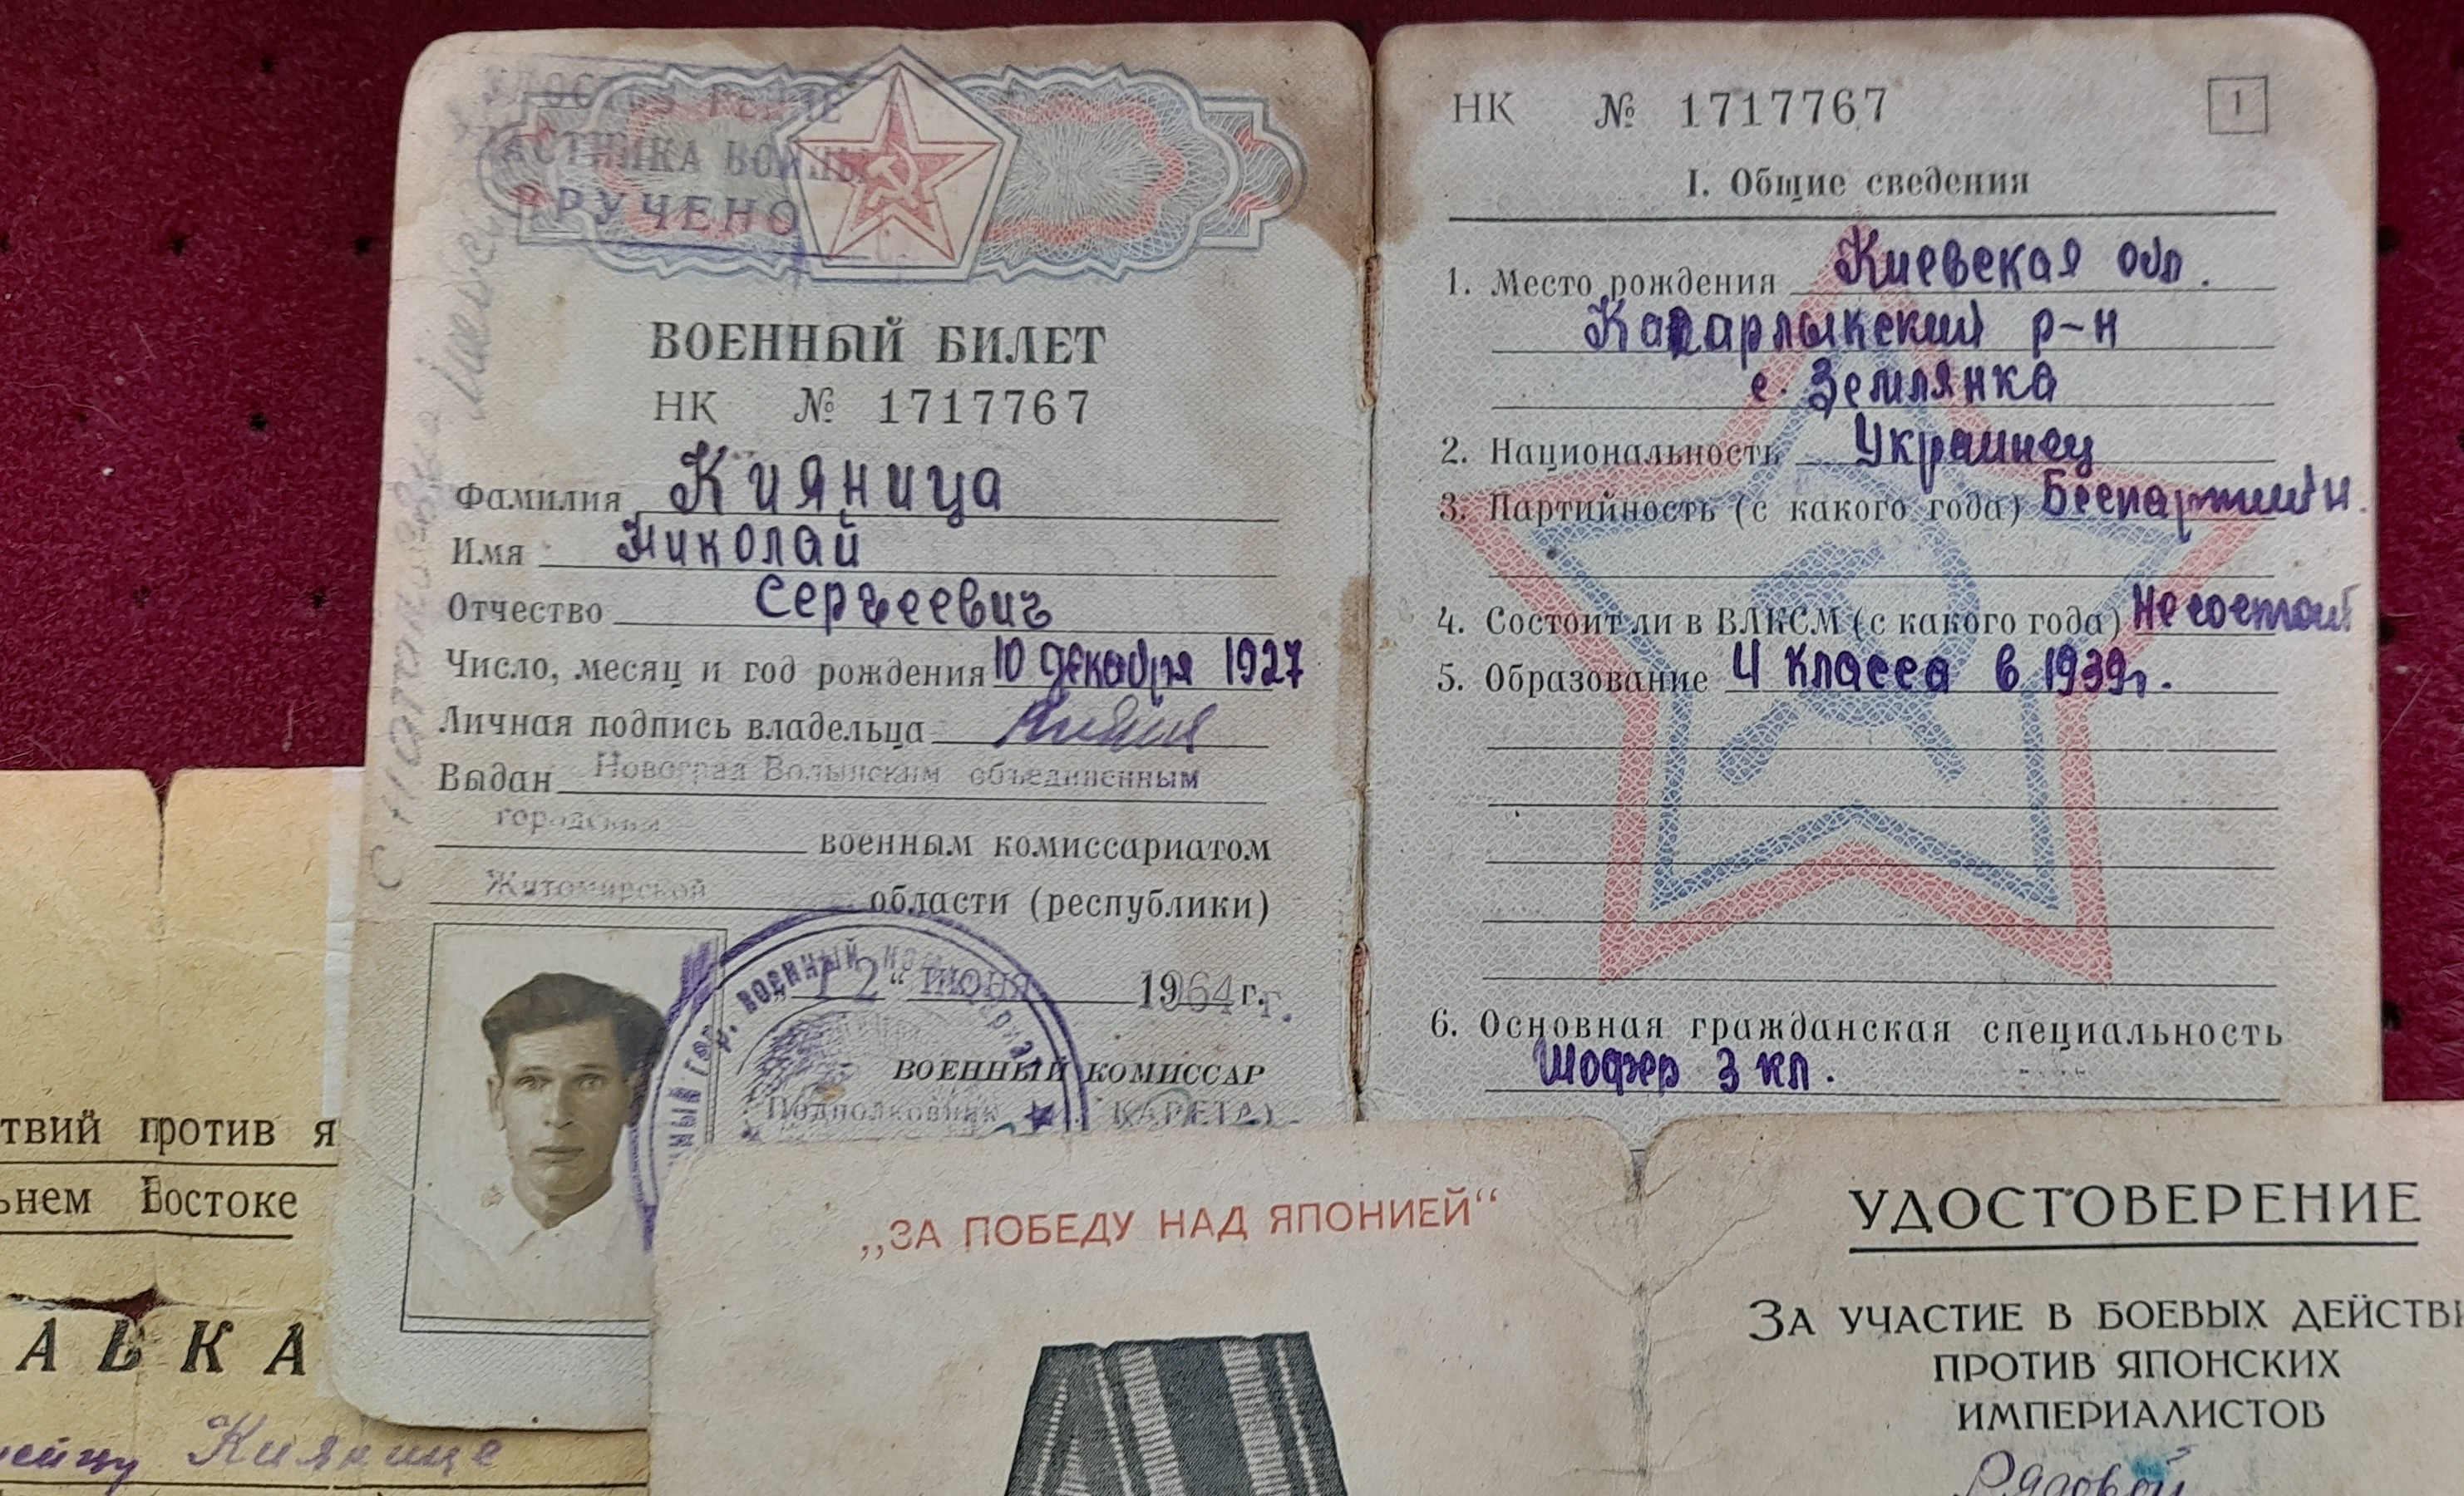 УЧАСТНИКА ВОЙНЫ
ВРУЧЕНО
ВОЕННЫЙ БИЛЕТ
НК № 1717767
Фамилия Кияница
Имя Николай
Отчество Сергеевич
Число, месяц и год рождения 10 декабря 1927
Личная подпись владельца
Выдан Новоград Волынским объединенным
городским
военным комиссариатом
Житомирской области (республики)
12 " июня 1964 г.
ВОЕННЫЙ КОМИССАР
Подполковник КАРЕТА)
НК № 1717767
1
I. Общие сведения
1. Место рождения Киевская обл.
Кагарлыкский р-н
с. Землянка
2. Национальность Украинец
3. Партийность (с какого года) Беспартийн.
4. Состоит ли в ВЛКСМ (с какого года) Не состоит
5. Образование 4 класса в 1939г.
6. Основная гражданская специальность
Шофер 3 кл.
твий против я
ьнем Востоке
АВКА
Киянице
„ЗА ПОБЕДУ НАД ЯПОНИЕЙ“
УДОСТОВЕРЕНИЕ
ЗА УЧАСТИЕ В БОЕВЫХ ДЕЙСТВИ
ПРОТИВ ЯПОНСКИХ
ИМПЕРИАЛИСТОВ
Рядовой